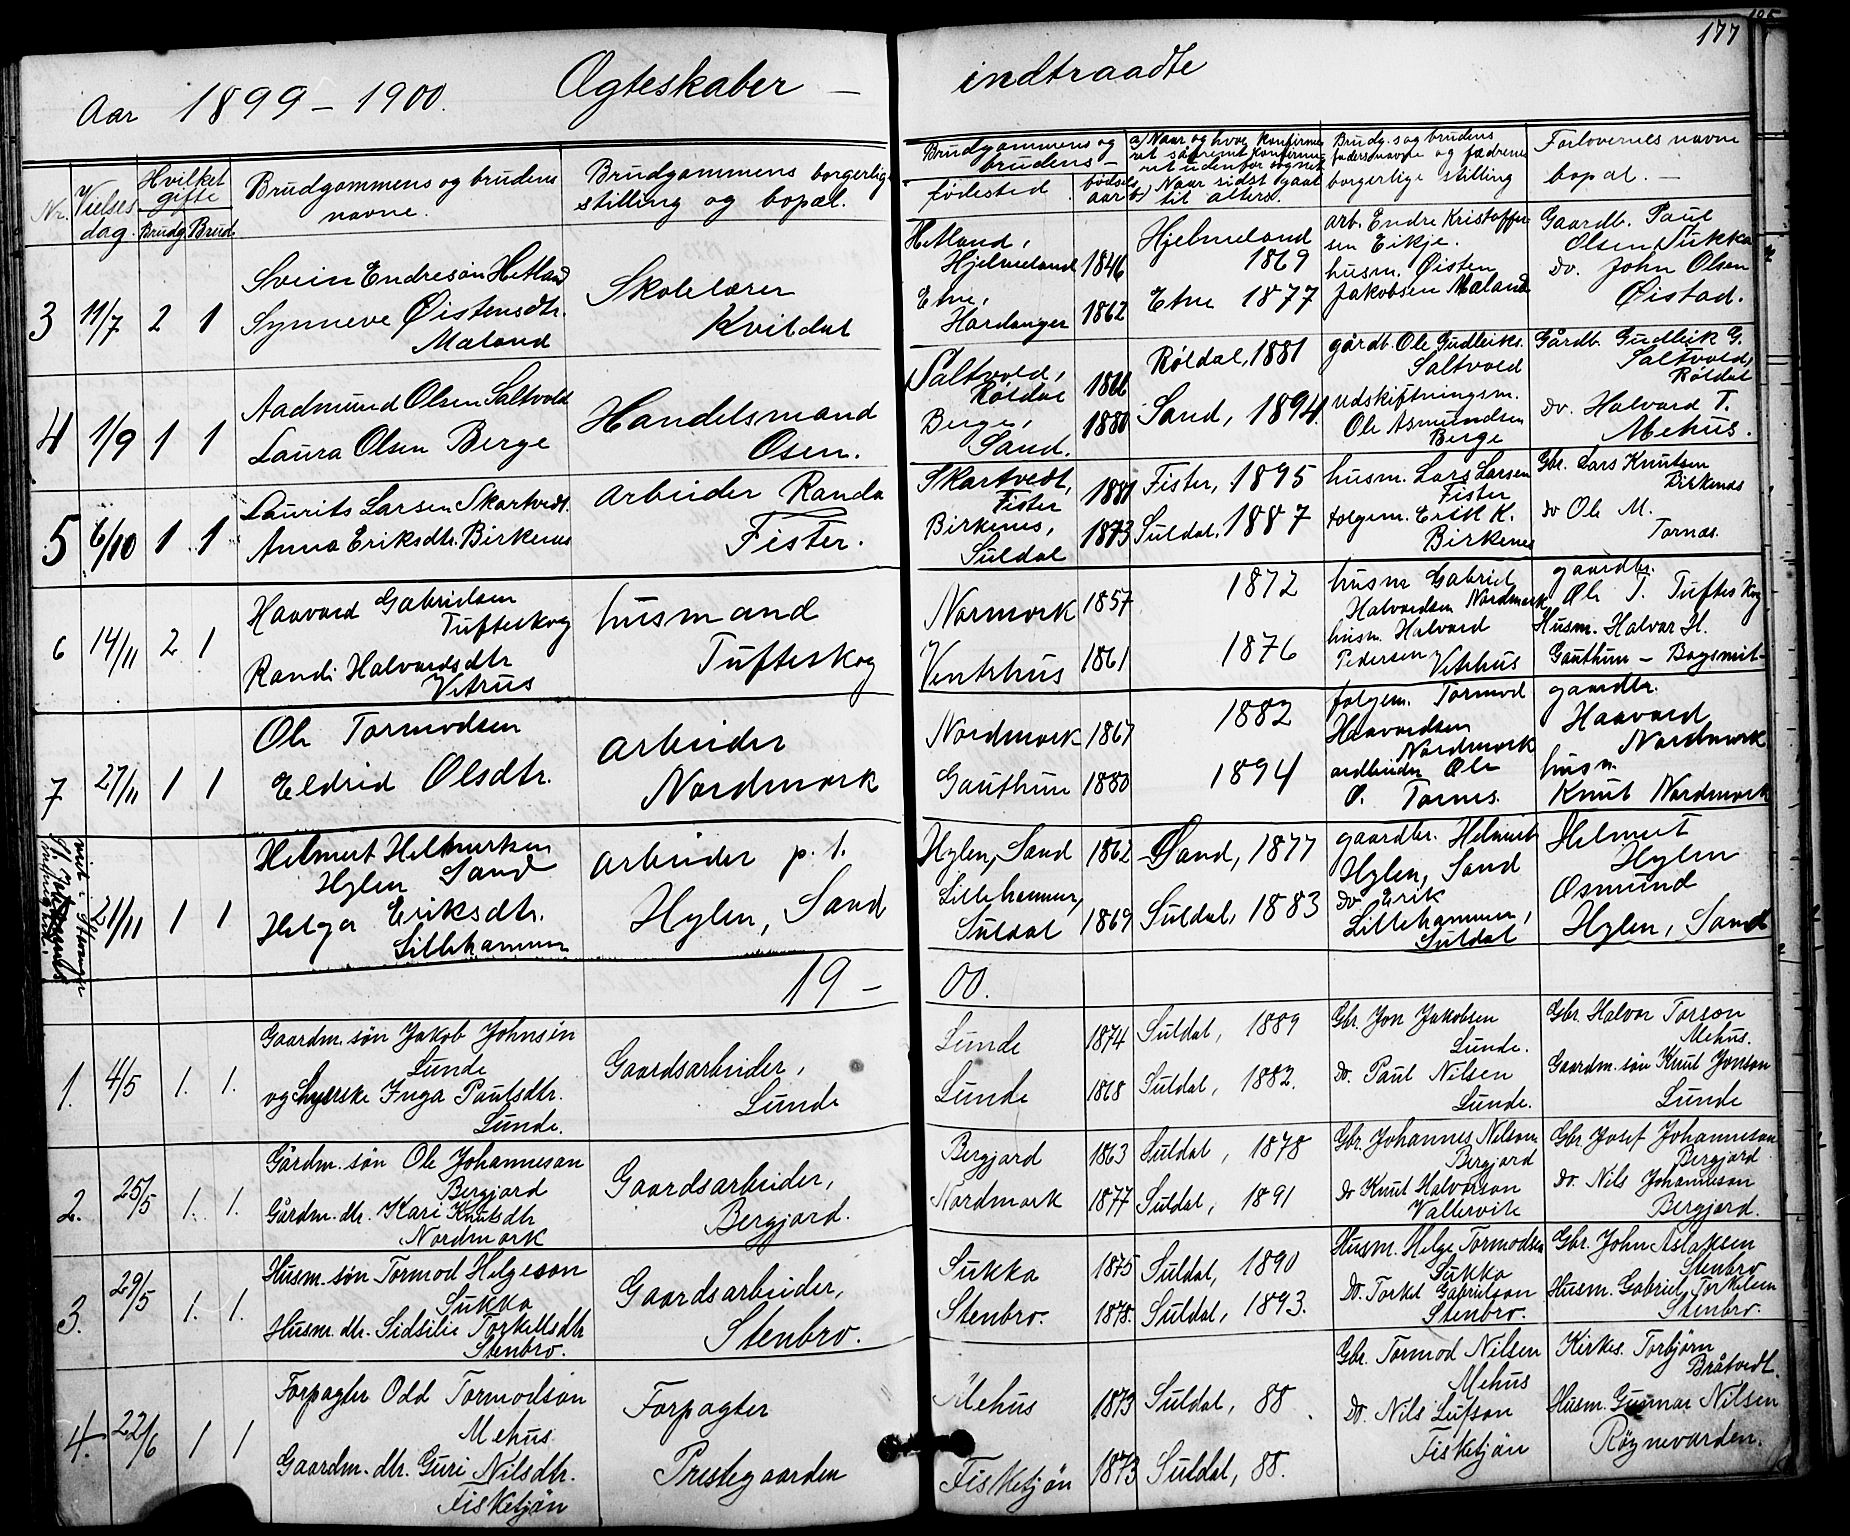 177
Aar 1899 – 1900. Ægteskaber — indtraadte
Nr.
Vielses dag.
Hvilket gifte
Brudg. Brud
Brudgommens og brudens navne.
Brudgommens borgerlige stilling og bopæl.
Brudgommens og brudens –
fødested.
fødsels aar
a) Naar og hvor konfirmeret
b) Naar sidst gaat til alters.
Brudg.s og brudens fadersnavne og fædrenes borgerlige stilling
Forlovernes navne
bopæl. —
3 11/7 2 1
Svein Endresøn Hetland
Synneve Øistensdtr.
Maland
Skolelærer
Kvildal
Hetland,
Hjelmeland 1846
Etne,
Hardanger 1862
Hjelmeland
1869
Etne 1877
arb. Endre Kristoffer
sen Eikje.
husm. Øisten
Jakobsen Maland
Gaardb. Paul
Olsen Sukka
do. John Olsen
Øistad.
4 1/9 1 1
Aadmund Olsen Saltvold
Laura Olsen Berge
Handelsmand
Osen.
Saltvold,
Røldal 1866
Berge,
Sand. 1880
Røldal, 1881
Sand, 1894.
gårdb. Ole Gudleiks.
Saltvold
udskiftningsm.
Ole Asmundsen
Berge
Gårdb. Gudleik G.
Saltvold,
Røldal
do. Halvard T.
Mehus.
5 6/10 1 1
Laurits Larsen Skartvedt.
Anna Eriksdtr. Birkenes
Arbeider Randa
Fister.
Skartvedt,
Fister 1881
Birkenes,
Suldal 1873
Fister, 1895
Suldal, 1887
husm. Lars Larsen
Fister
folgem. Erik K.
Birkenes
Gbr. Lars Knutsen
Birkenes
do Ole M.
Tornas.
6 14/11 2 1
Haavard Gabrielsen
Tufteskog
Randi Halvardsdtr
Vetrus
husmand
Tufteskog
Normork 1857
Ventrhus 1861
1872
1876
husm Gabriel
Halvardsen Nordmork
husm. Halvard
Pedersen Vetrhus
gaardbr.
Ole T. Tufteskog
Husm. Halvar H.
Gauthun –
7 27/11 1 1
Ole Tormodsen
Eldrid Olsdtr.
arbeider
Nordmork
Nordmork 1867
Gauthun 1880
1882
1894
folgem. Tormod
Haavardsen
Nordmork
Ole
O. Tornes.
gaardbr.
Haavard
Nordmork
husm.
Knut Nordmork
21/11 1 1
Helmert Helmerksen
Hylen Sand
Helga Eriksdtr.
Lillehammer
arbeider p. t.
Hylen, Sand
Hylen, Sand 1862
Lillehammer,
Suldal 1869
Sand, 1877
Suldal, 1883
gaardbr. Helmert
Hylen, Sand
do Erik
Lillehammer,
Suldal
Helmert
Hylen
Osmund
Hylen, Sand
19 – 00.
1. 4/5 1. 1.
Gaardm. søn Jakob Johnsøn
Lunde
og Syerske Inga Paulsdtr.
Lunde.
Gaardsarbeider,
Lunde
Lunde 1874
Lunde 1868
Suldal, 1889
Suldal, 1882.
Gbr. Jon Jakobsen
Lunde.
Do. Paul Nilsen
Lunde.
Gbr. Halvor Torson
Mehus.
Gaardm. søn Knut Jonson
Lunde
2. 25/5 1. 1.
Gårdm. søn Ole Johanneson
Bergjord
Gårdm. dtr. Kari Knutsdtr
Nordmork
Gaardsarbeider,
Bergjord.
Bergjord 1863
Nordmork 1877
Suldal, 1878
Suldal, 1891
Gbr. Johannes Nilsen
Bergjord
Do Knut Halvorson
Vallervite
Gbr Josef Johanneson
Bergjord
Do. Nils Johanneson
Bergjord.
3. 29/5 1. 1.
Husm. søn Tormod Helgeson
Sukka
Husm. dtr. Sidsilie Torkelsdtr
Stenbro.
Gaardsarbeider,
Stenbro.
Sukka 1875
Stenbro. 1878.
Suldal, 1890
Suldal, 1893.
Husm. Helge Tormodsen
Sukka
Do. Torkel Gabrielson
Stenbro.
Gbr. John Aslaksen
Stenbro
Husm. Gabriel Torkelsen
Stenbro.
4. 22/6 1 1
Forpagter Odd Tormodson
Mehus.
Gaardm. dtr. Guri Nilsdtr.
Fisketjøn
Forpagter
Prestegaarden
Mehus 1873
Fisketjøn 1873
Suldal, 88.
Suldal, 88.
Gbr. Tormod Nilsen
Mehus
Do. Nils Lufson
Fisketjøn
Kirkes. Torbjørn
Bråtvedt.
Husm. Gunnar Nilsen
Røynevarden.